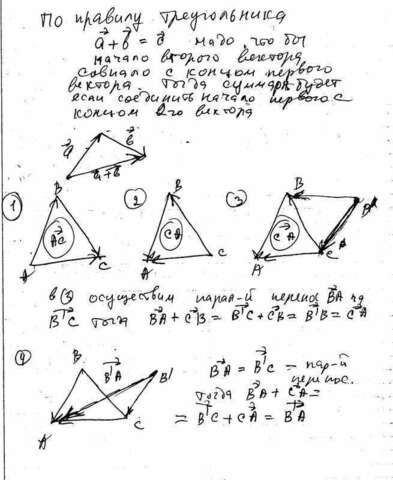 По правилу треугольника
a⃗ + b⃗ = c⃗ надо, что бы
начало второго вектора
совпало с концом первого
вектора. Тогда сумма будет
если соединить начало первого с
концом 2го вектора
a⃗ b⃗
a⃗+b⃗
① B AC⃗ A C
② B CA⃗ A C
③ B B' CA⃗ A C
в ③ осуществим парал-й перенос BA⃗ на
B'C⃗ тогда BA⃗ + CB⃗ = B'C⃗ + CB⃗ = B'B⃗ = CA⃗
④ B B'A⃗ B' A C
BA⃗ = B'C⃗ = пар-й
перенос.
тогда BA⃗ + CA⃗ =
= B'C⃗ + CA⃗ = B'A⃗